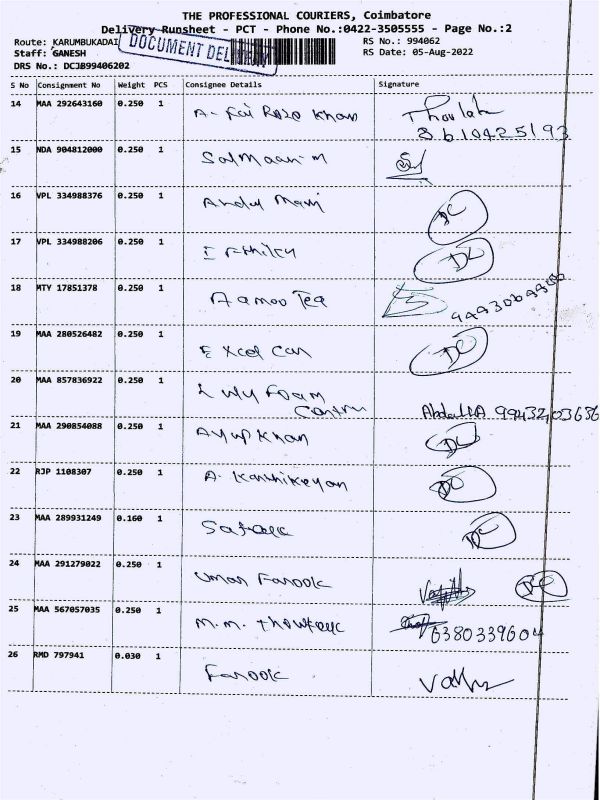 THE PROFESSIONAL COURIERS, Coimbatore
Delivery Runsheet - PCT - Phone No.:0422-3505555 - Page No.:2
Route: KARUMBUKADAI RS No.: 994062
Staff: GANESH RS Date: 05-Aug-2022
DOCUMENT DEL
DRS No.: DCJB99406202
S No Consignment No Weight PCS Consignee Details Signature
14 MAA 292643160 0.250 1 A- Khan
8610425193
15 NDA 904812000 0.250 1 Salmaan-M
16 VPL 334988376 0.250 1 DC
17 VPL 334988206 0.250 1 DC
18 MTY 17851378 0.250 1 Aamoo Tea
19 MAA 280526482 0.250 1 Excel Can DC
20 MAA 857836922 0.250 1 Lulu Foam
Abdulla 9943203636
21 MAA 290854088 0.250 1 Ayup Khan DC
22 RJP 1108307 0.250 1 A. Karthikeyan DC
23 MAA 289931249 0.160 1 DC
24 MAA 291279022 0.250 1 Umar Farook DC
25 MAA 567057035 0.250 1 M.M. 6380339604
26 RMD 797941 0.030 1 Farook